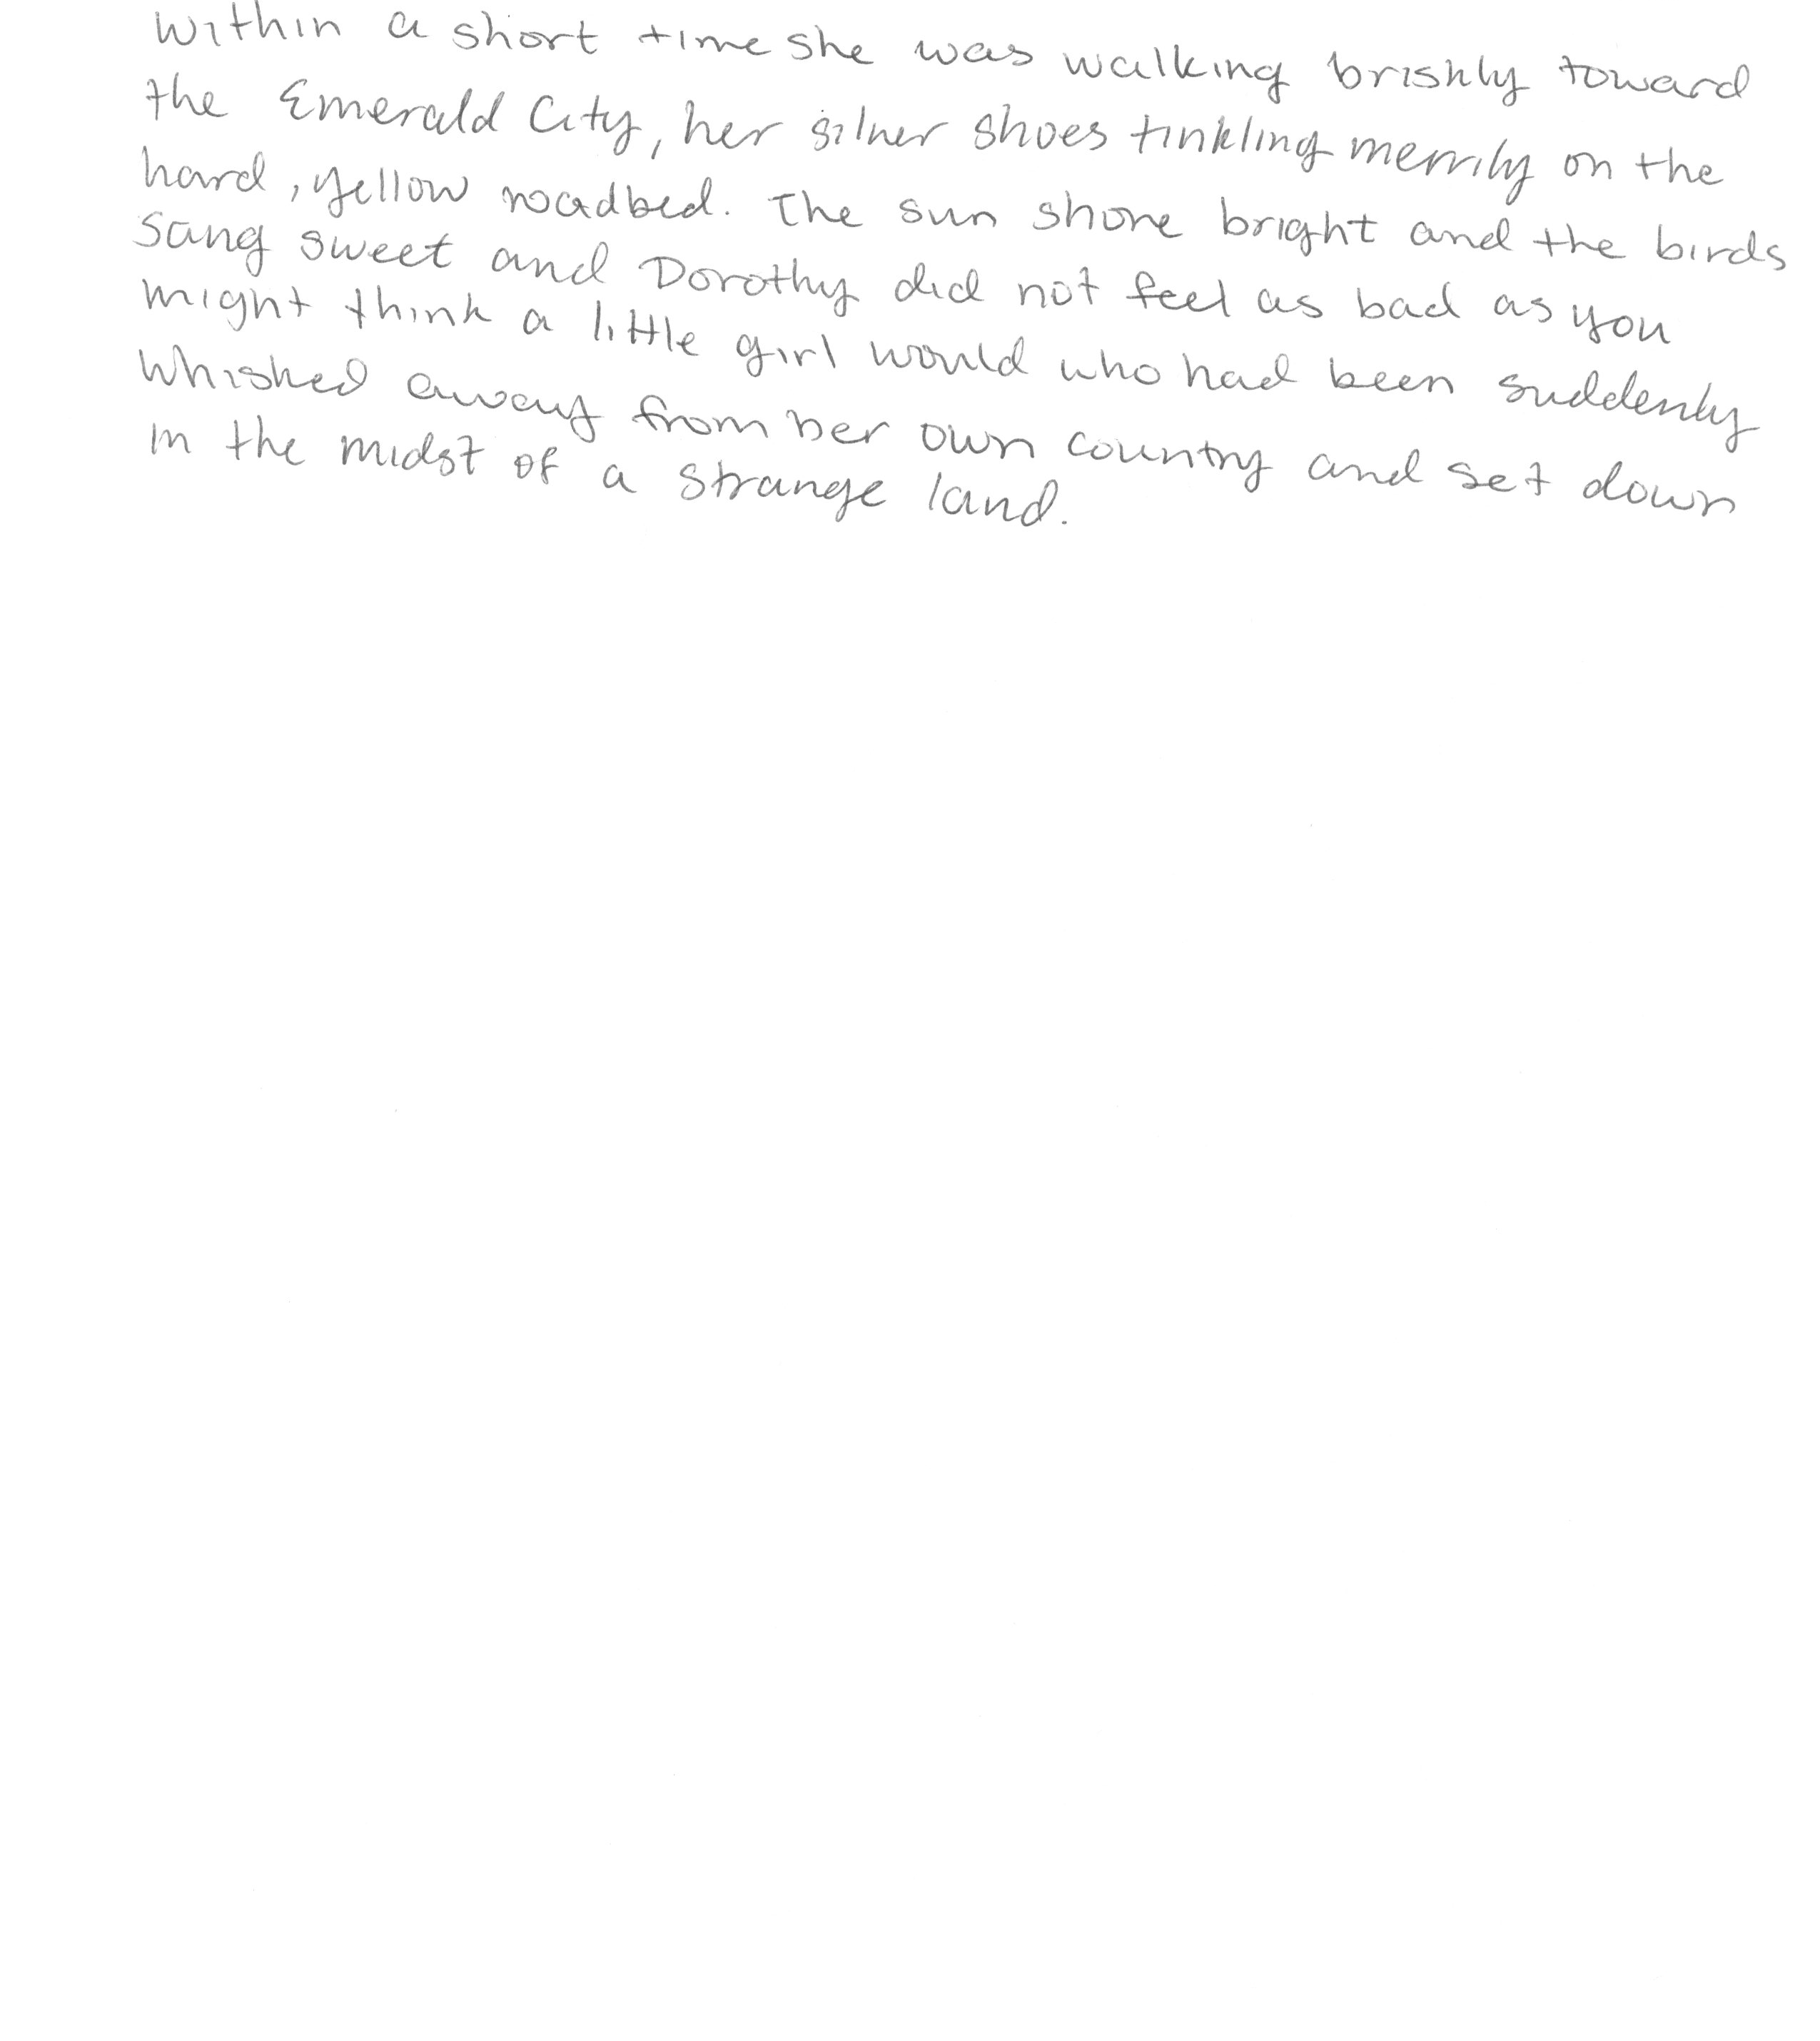 within a short time she was walking briskly toward
the Emerald City, her silver shoes tinkling merrily on the
hard, yellow roadbed. The sun shone bright and the birds
sang sweet and Dorothy did not feel as bad as you
might think a little girl would who had been suddenly
whisked away from her own country and set down
in the midst of a strange land.